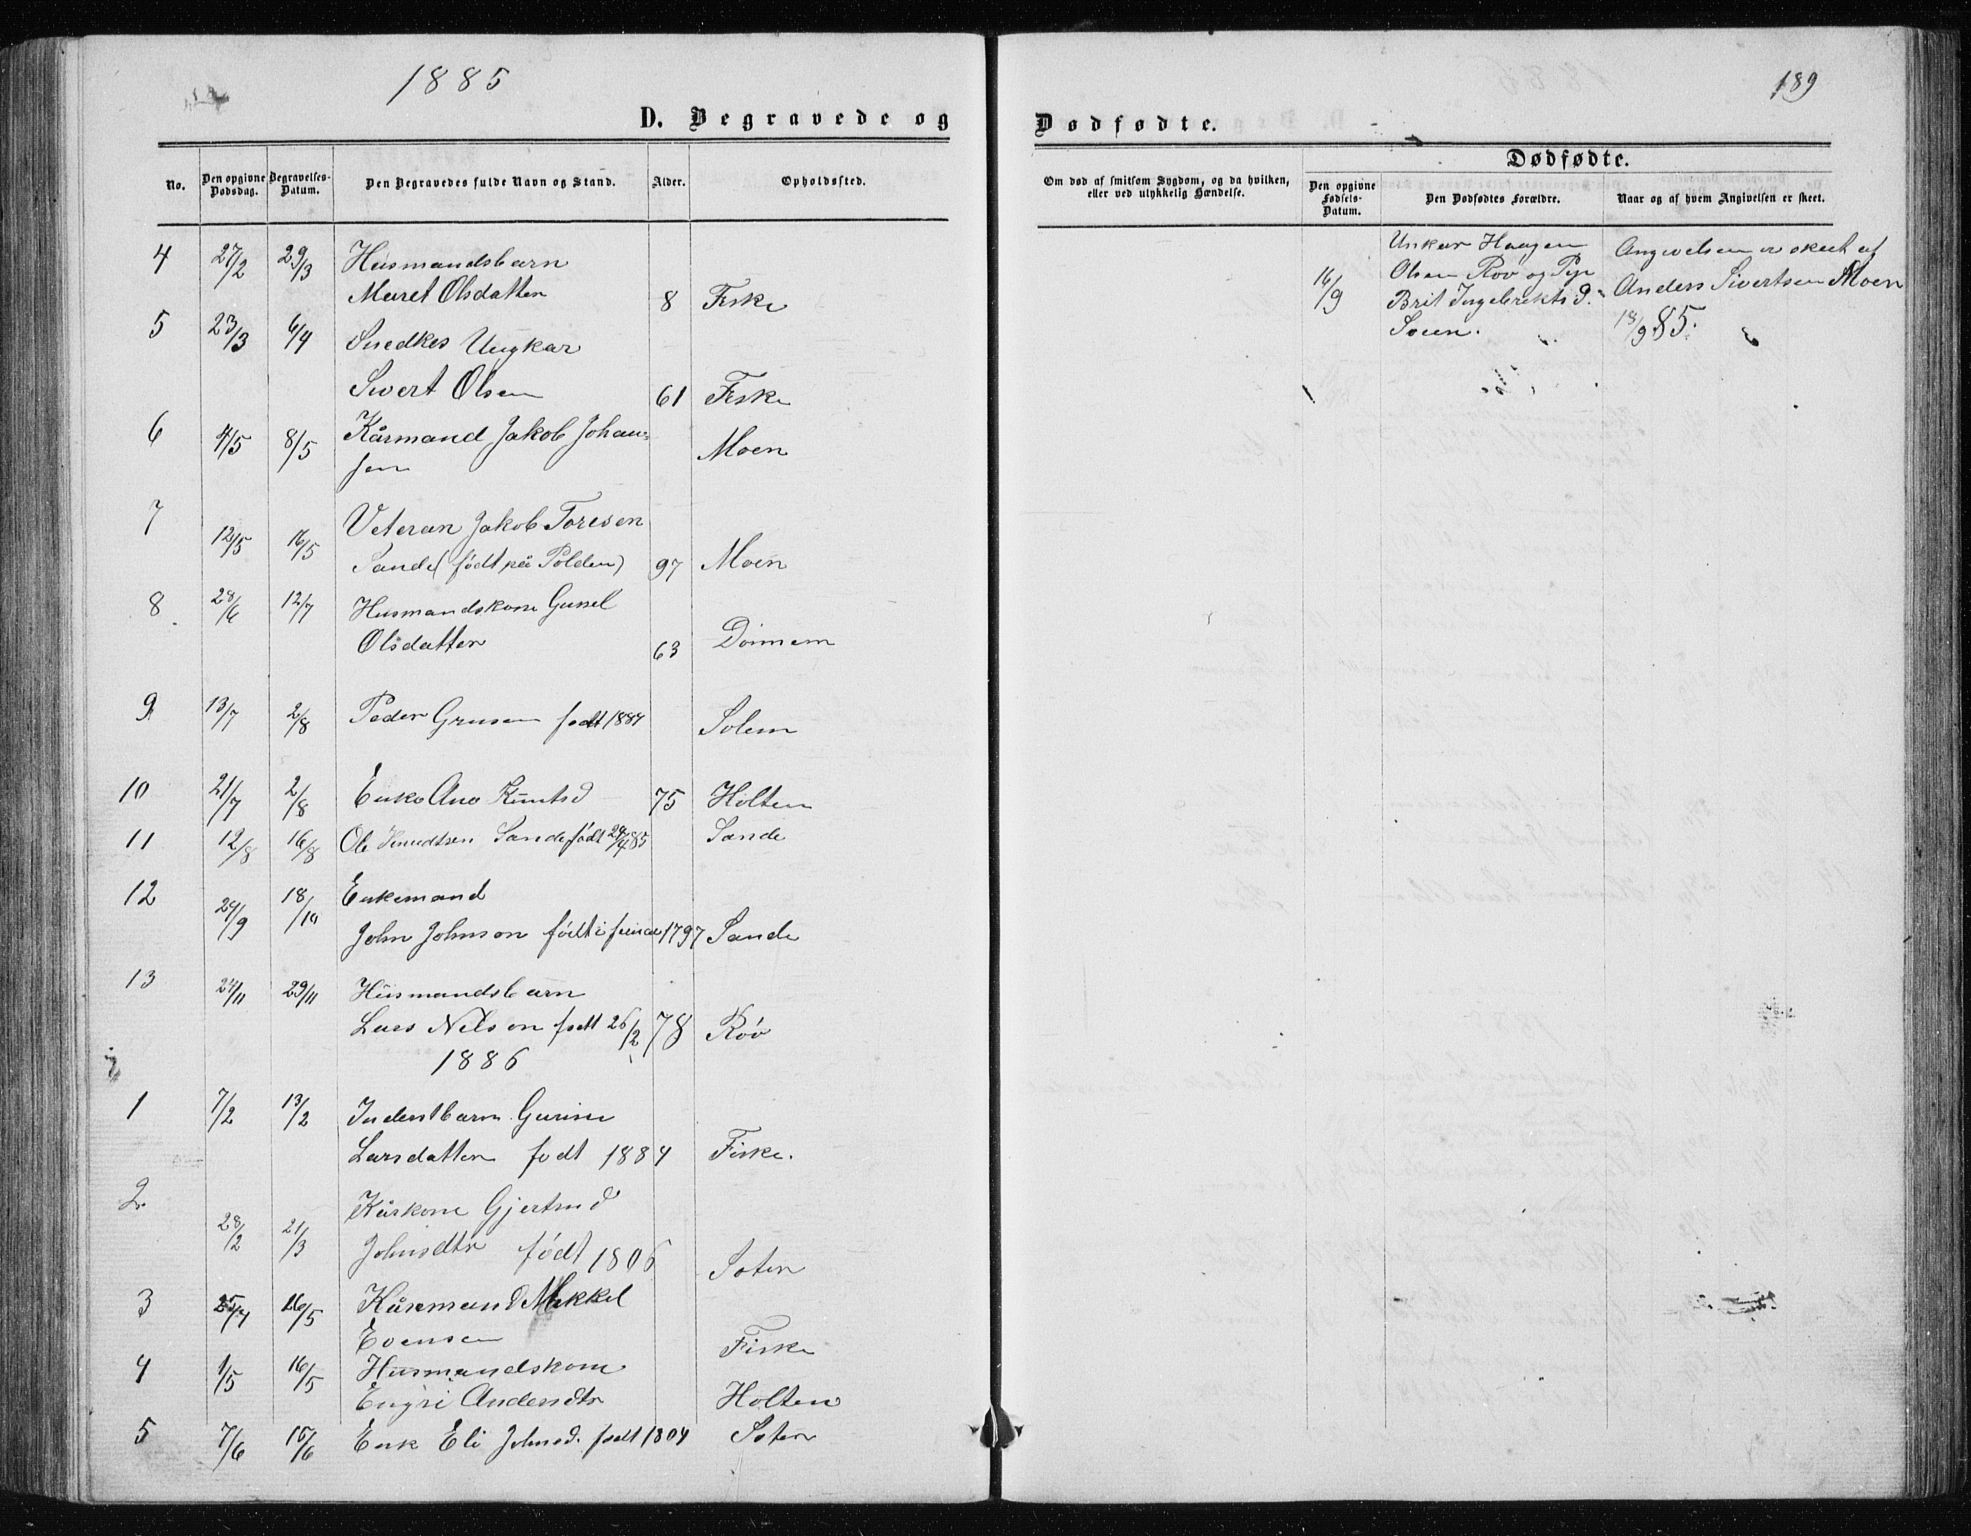 1885
189
D. Begravede og Dødfødte.
Dødfødte.
No. Den opgivne Dødsdag. Begravelses-Datum. Den Begravedes fulde Navn og Stand. Alder. Opholdssted.
Om død af smitsom Sygdom, og da hvilken, eller ved ulykkelig Hændelse. Den opgivne Fødsels-Datum. Den Dødfødtes Forældre. Naar og af hvem Angivelsen er skeet.
4 27/2 29/3 Husmandsbarn
Maret Olsdatter 8 Fiske
5 23/3 6/4 Snedker Ungkar
Sivert Olsen 61 Fiske
6 4/5 8/5 Kårmand Jakob Johan-
sen Moen
7 12/5 16/5 Veteran Jakob Toresen
Sande (født på Polden) 97 Moen
8 28/6 12/7 Husmandskone Gunel
Olsdatter 63
9 13/7 2/8 Peder født 1884 Solem
10 21/7 2/8 Enke Ane Knutsd 75 Holten
11 12/8 16/8 Ole Knudtsen Sande født 24/4 85 Sande
12 24/9 18/10 Enkemand
John Johnson født i 1797 Sande
13 24/11 29/11 Husmandsbarn
Lars Nelson født 26/2 78 Røv
1886
1 7/2 13/2 Inderstbarn Gurine
Larsdatter født 1884 Fiske.
2 28/2 21/3 Kårkone Gjertrud
Johnsdtr født 1806 Soten
3 25/4 16/5 Kårmand Mikkel
Evensen Fiske
4 1/5 16/5 Husmandskone
Engri Andersdtr Holten
5 7/6 15/6 Enk Eli Johnsd. født 1804 Soten
16/9 Unkar Haagen
Olsen Røv og Pige
Brit Ingebrikts D.
Angivelsen er skeet af
Anders Sivertsen Moen
18/9 85.